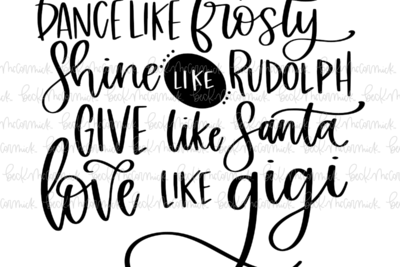 DANCE LIKE frosty
Shine LIKE RUDOLPH
GIVE like Santa
love LIKE gigi